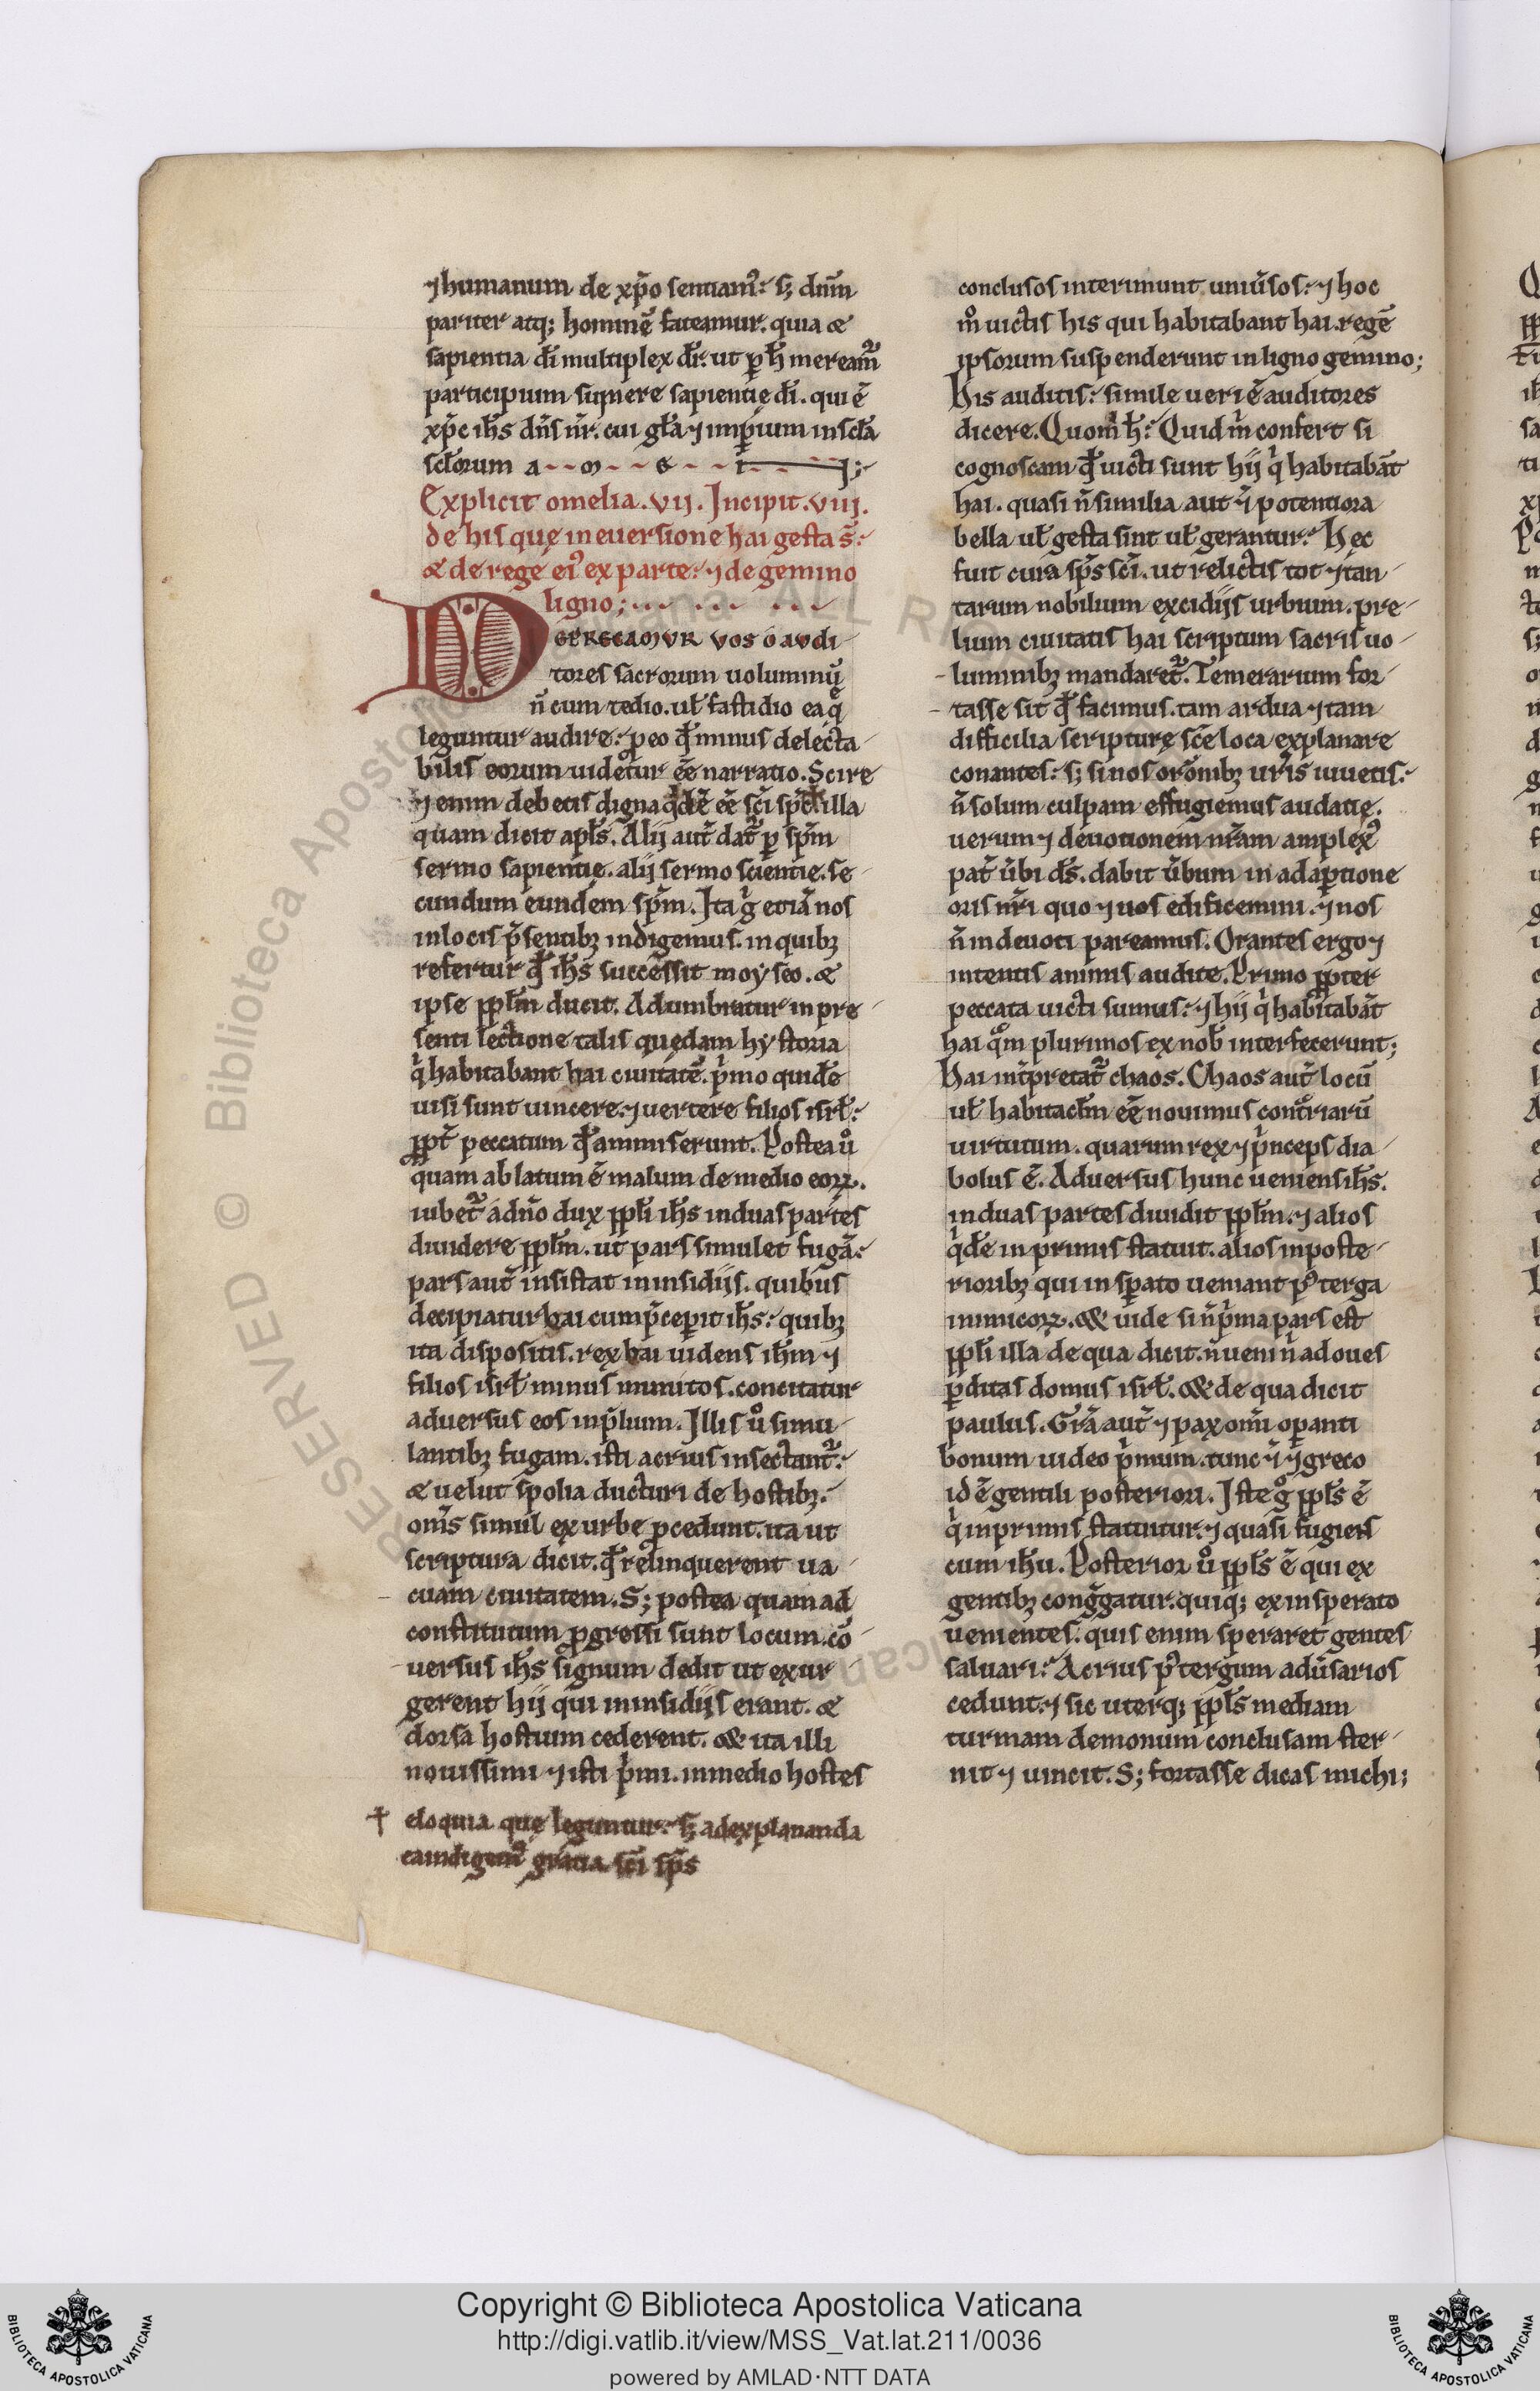 ⁊ humanum de xp̄o sentiamꝰ. s; dn̄m
pariter atq; hominē fateamur. quia &
sapientia dī multiplex dr̄. ut ꝑ h̄ meream̄
participium sumere sapientię dī. qui ē
xp̄c ih̄s dn̄s nr̄. cui gl̄a ⁊ imꝑium in scl̄a
scl̄orum a--m--e--n;
Explicit omelia. vii. Incipit. viii.
de his quę in euersione hai gesta s̄.
& de rege eiꝰ ex parte. ⁊ de gemino
ligno;
DEPRECAMVR VOS O AVDI
tores sacrorum uoluminū
n̄ cum tedio. ul̄ fastidio ea q̄
leguntur audire. ꝓ eo qđ minus delecta
bilis eorum uidetur eē narratio. Scire
⁊enim debetis digna q̇dē eē sc̄i sp̄c † illa
quam dicit apl̄s. Alij aut̄ dat̄ ꝑ sp̄m
sermo sapientię. alij sermo scientię. se
cundum eundem sp̄m. Ita g̊ etiā nos
in locis p̄sentib; indigemus. in quib;
refertur qđ ih̄s successit moyseo. &
ipse ppl̄m ducit. Adumbratur in pre
senti lectione talis quędam hystoria
q̇ habitabant hai ciuitatē. ṗmo quidē
uisi sunt uincere. ⁊ uertere filios isrl̄.
ꝓpt̄ peccatum qđ ammiserunt. Postea ů
quam ablatum ē malum de medio eoꝝ.
iubet̄ a dn̄o dux ppl̄i ih̄s in duas partes
diuidere ppl̄m. ut pars simulet fugā.
pars aut̄ insistat in insidijs. quibus
decipiatur hai cum p̄ceꝑit ih̄s. quib;
ita dispositis. rex hai uidens ih̄m ⁊
filios isrl̄ minus munitos. concitatur
aduersus eos in p̄lium. Illis ů simu
lantib; fugam. isti acrius insectant̄.
& uelut spolia ducturi de hostib;.
om̄s simul ex urbe ꝓcedunt. ita ut
scriptura dicit. qđ relinquerent ua
cuam ciuitatem. S; postea quam ad
constitutum ꝓgressi sunt locum. cō
uersus ih̄s signum dedit ut exur
gerent hij qui in insidijs erant. &
dorsa hostium cederent. & ita illi
nouissimi ⁊ isti ṗmi. in medio hostes
† eloquia quę leguntur. s; ad explananda
ea indigemꝰ gratia sc̄i sp̄s
conclusos interimunt uniūsos. ⁊ hoc
m̊ uictis his qui habitabant hai. regē
ipsorum suspenderunt in ligno gemino;
His auditis. simile ueri ē auditores
dicere. Quom̊ h̄. Quid ṁ confert si
cognoscam qđ uicti sunt hij q̇ habitabāt
hai. quasi n̄ similia aut ⁊̄ potentiora
bella ul̄ gesta sint ul̄ gerantur. Hęc
fuit cura sp̄s sc̄i. ut relictis tot ⁊ tan
tarum nobilium excidijs urbium. pre
lium ciuitatis hai scriptum sacris uo
luminib; mandaret̄. Temerarium for
tasse sit qđ facimus. tam ardua ⁊ tam
difficilia scripturę sc̄e loca explanare
conantes. s; si nos orōnib; ur̄is iuuetis.
n̄ solum culpam effugiemus audatię.
uerum ⁊ deuotionem nr̄am amplexꝰ
pat̄ ūbi ds̄. dabit ūbum in adaꝑtione
oris nr̄i quo ⁊ uos edificemini. ⁊ nos
n̄ indeuoti pareamus. Orantes ergo ⁊
intentis animis audite. Primo ꝓpter
peccata uicti sumus. ⁊ hij q̇ habitabāt
hai q̊m plurimos ex nob̄ interfecerunt;
Hai int̄pretat̄ chaos. Chaos aut̄ locū
ul̄ habitacl̄m eē nouimus cont̊riarū
uirtutum. quarum rex ⁊ ṗnceps dia
bolus ē. Aduersus hunc ueniens ih̄s.
in duas partes diuidit ppl̄m. ⁊ alios
q̇dē in primis statuit. alios in poste
riorib; qui insꝑato ueniant pꝰ terga
inimicoꝝ. & uide si n̄ ṗma pars est
ppl̄i illa de qua dicit. n̄ ueni n̄ ad oues
ꝑditas domus isrl̄. & de qua dicit
paulus. Gr̄a aut̄ ⁊ pax om̄i oꝑanti
bonum iudeo ṗmum. tunc ⁊̄ ⁊ greco
id ē gentili posteriori. Iste g̊ ppl̄s ē
q̇ in primis statuitur. ⁊ quasi fugiens
cum ih̄u. Posterior ů ppl̄s ē qui ex
gentib; cong̊gatur. quiq; ex insperato
uenientes. quis enim speraret gentes
saluari. Acrius pꝰ tergum adūsarios
cedunt. ⁊ sic uterq; ppl̄s mediam
turmam demonum conclusam ster
nit ⁊ uincit. S; fortasse dicas michi;
RESERVED © Biblioteca Apostolica Vaticana ALL RIGHTS
Copyright © Biblioteca Apostolica Vaticana
http://digi.vatlib.it/view/MSS_Vat.lat.211/0036
powered by AMLAD·NTT DATA
BIBLIOTECA APOSTOLICA VATICANA
BIBLIOTECA APOSTOLICA VATICANA